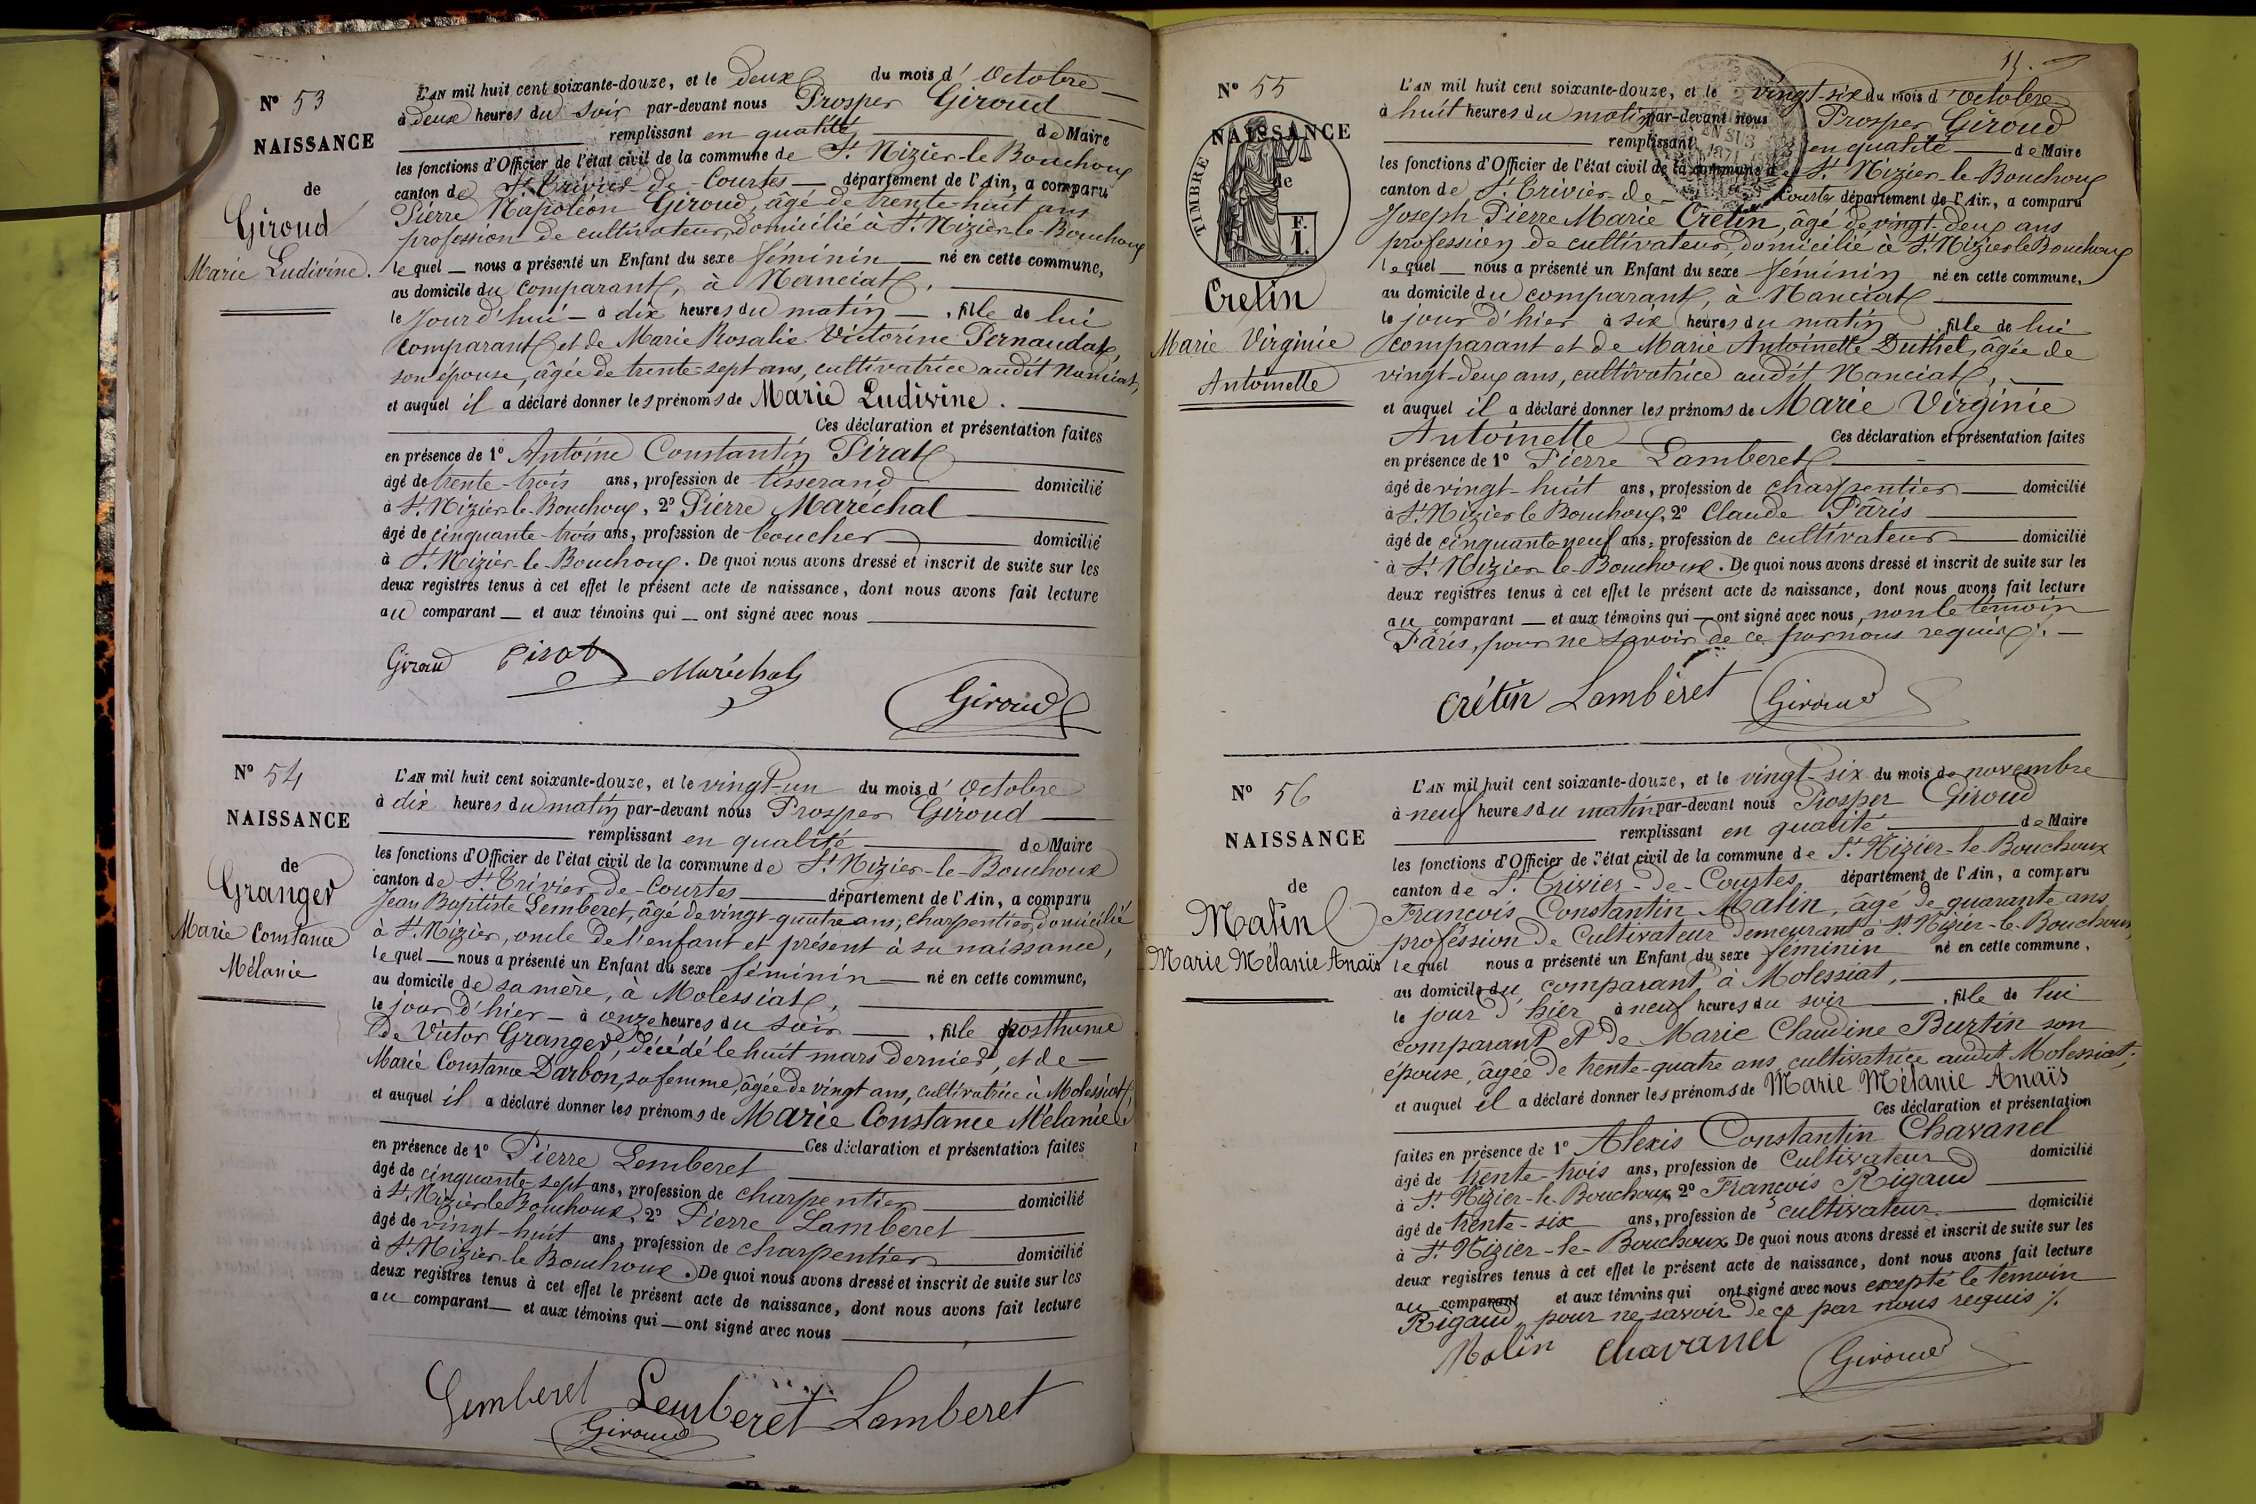 Nº 53
NAISSANCE
de
Giroud
Marie Ludivine.
L'AN mil huit cent soixante-douze, et le deux du mois d' Octobre
à deux heures du soir par-devant nous Prosper Giroud
remplissant en qualité de Maire
les fonctions d'Officier de l'état civil de la commune de St. Nizier-le-Bouchoux
canton de St. Trivier-de-Courtes département de l'Ain, a comparu
Pierre Napoléon Giroud, âgé de trente-huit ans
profession de cultivateur, domicilié à St. Nizier-le-Bouchoux
lequel nous a présenté un Enfant du sexe féminin né en cette commune,
au domicile du comparant, à Nanciat,
le jour d'hui à dix heures du matin, fille de lui
comparant et de Marie Rosalie Victorine Pernaudat,
son épouse, âgée de trente-sept ans, cultivatrice audit Nanciat,
et auquel il a déclaré donner les prénoms de Marie Ludivine.
Ces déclaration et présentation faites
en présence de 1º Antoine Constantin Pirat
âgé de trente-trois ans, profession de tisserand domicilié
à St. Nizier-le-Bouchoux, 2º Pierre Maréchal
âgé de cinquante-trois ans, profession de boucher domicilié
à St. Nizier-le-Bouchoux. De quoi nous avons dressé et inscrit de suite sur les
deux registres tenus à cet effet le présent acte de naissance, dont nous avons fait lecture
au comparant et aux témoins qui ont signé avec nous
Giroud Pirat Maréchal
Giroud
Nº 54
NAISSANCE
de
Granger
Marie Constance
Mélanie
L'AN mil huit cent soixante-douze, et le vingt-un du mois d' Octobre
à dix heures du matin par-devant nous Prosper Giroud
remplissant en qualité de Maire
les fonctions d'Officier de l'état civil de la commune de St. Nizier-le-Bouchoux
canton de St. Trivier-de-Courtes département de l'Ain, a comparu
Jean Baptiste Lemberet, âgé de vingt-quatre ans, charpentier, domicilié
à St. Nizier, oncle de l'enfant et présent à sa naissance,
lequel nous a présenté un Enfant du sexe féminin né en cette commune,
au domicile de sa mère, à Molessiat,
le jour d'hier à onze heures du soir, fille posthume
de Victor Granger, décédé le huit mars dernier, et de
Marie Constance Darbon, sa femme, âgée de vingt ans, cultivatrice à Molessiat,
et auquel il a déclaré donner les prénoms de Marie Constance Mélanie
Ces déclaration et présentation faites
en présence de 1º Pierre Lemberet
âgé de cinquante-sept ans, profession de charpentier domicilié
à St. Nizier le Bouchoux, 2º Pierre Lamberet
âgé de vingt-huit ans, profession de charpentier domicilié
à St. Nizier-le-Bouchoux. De quoi nous avons dressé et inscrit de suite sur les
deux registres tenus à cet effet le présent acte de naissance, dont nous avons fait lecture
au comparant et aux témoins qui ont signé avec nous
Lemberet Lemberet Lamberet
Giroud
Nº 55
NAISSANCE
de
TIMBRE
Cretin
Marie Virginie
Antoinette
L'AN mil huit cent soixante-douze, et le vingt-six du mois d' Octobre
à huit heures du matin par-devant nous Prosper Giroud
remplissant en qualité de Maire
les fonctions d'Officier de l'état civil de la commune de St. Nizier-le-Bouchoux
canton de St. Trivier-de-Courtes département de l'Ain, a comparu
Joseph Pierre Marie Cretin, âgé de vingt-deux ans
profession de cultivateur, domicilié à St. Nizier le Bouchoux
lequel nous a présenté un Enfant du sexe féminin né en cette commune,
au domicile du comparant, à Nanciat
le jour d'hier à six heures du matin, fille de lui
comparant et de Marie Antoinette Duthel, âgée de
vingt-deux ans, cultivatrice audit Nanciat,
et auquel il a déclaré donner les prénoms de Marie Virginie
Antoinette Ces déclaration et présentation faites
en présence de 1º Pierre Lamberet
âgé de vingt-huit ans, profession de charpentier domicilié
à St. Nizier le Bouchoux, 2º Claude Pâris
âgé de cinquante-neuf ans, profession de cultivateur domicilié
à St. Nizier-le-Bouchoux. De quoi nous avons dressé et inscrit de suite sur les
deux registres tenus à cet effet le présent acte de naissance, dont nous avons fait lecture
au comparant et aux témoins qui ont signé avec nous, non le témoin
Pâris, pour ne savoir de ce par nous requis.
Crétin Lambéret Giroud
Nº 56
NAISSANCE
de
Malin
Marie Mélanie Anaïs
L'AN mil huit cent soixante-douze, et le vingt-six du mois de novembre
à neuf heures du matin par-devant nous Prosper Giroud
remplissant en qualité de Maire
les fonctions d'Officier de l'état civil de la commune de St. Nizier-le-Bouchoux
canton de St. Trivier-de-Courtes département de l'Ain, a comparu
François Constantin Malin, âgé de quarante ans
profession de Cultivateur demeurant à St. Nizier-le-Bouchoux,
lequel nous a présenté un Enfant du sexe féminin né en cette commune,
au domicile du comparant à Molessiat,
le jour d'hier à neuf heures du soir, fille de lui
comparant et de Marie Claudine Burtin son
épouse, âgée de trente-quatre ans, cultivatrice audit Molessiat;
et auquel il a déclaré donner les prénoms de Marie Mélanie Anaïs
Ces déclaration et présentation
faites en présence de 1º Alexis Constantin Chavanel
âgé de trente-trois ans, profession de Cultivateur domicilié
à St. Nizier-le-Bouchoux, 2º François Rigaud
âgé de trente-six ans, profession de cultivateur domicilié
à St. Nizier-le-Bouchoux De quoi nous avons dressé et inscrit de suite sur les
deux registres tenus à cet effet le présent acte de naissance, dont nous avons fait lecture
au comparant et aux témoins qui ont signé avec nous excepté le témoin
Rigaud, pour ne savoir de ce par nous requis ./.
Malin Chavanel
Giroud